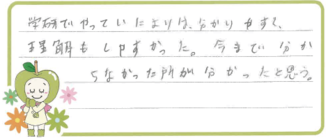 学研でやっていたよりは、分かりやすく、
理解もしやすかった。今まで分か
らなかった所が分かったと思う。